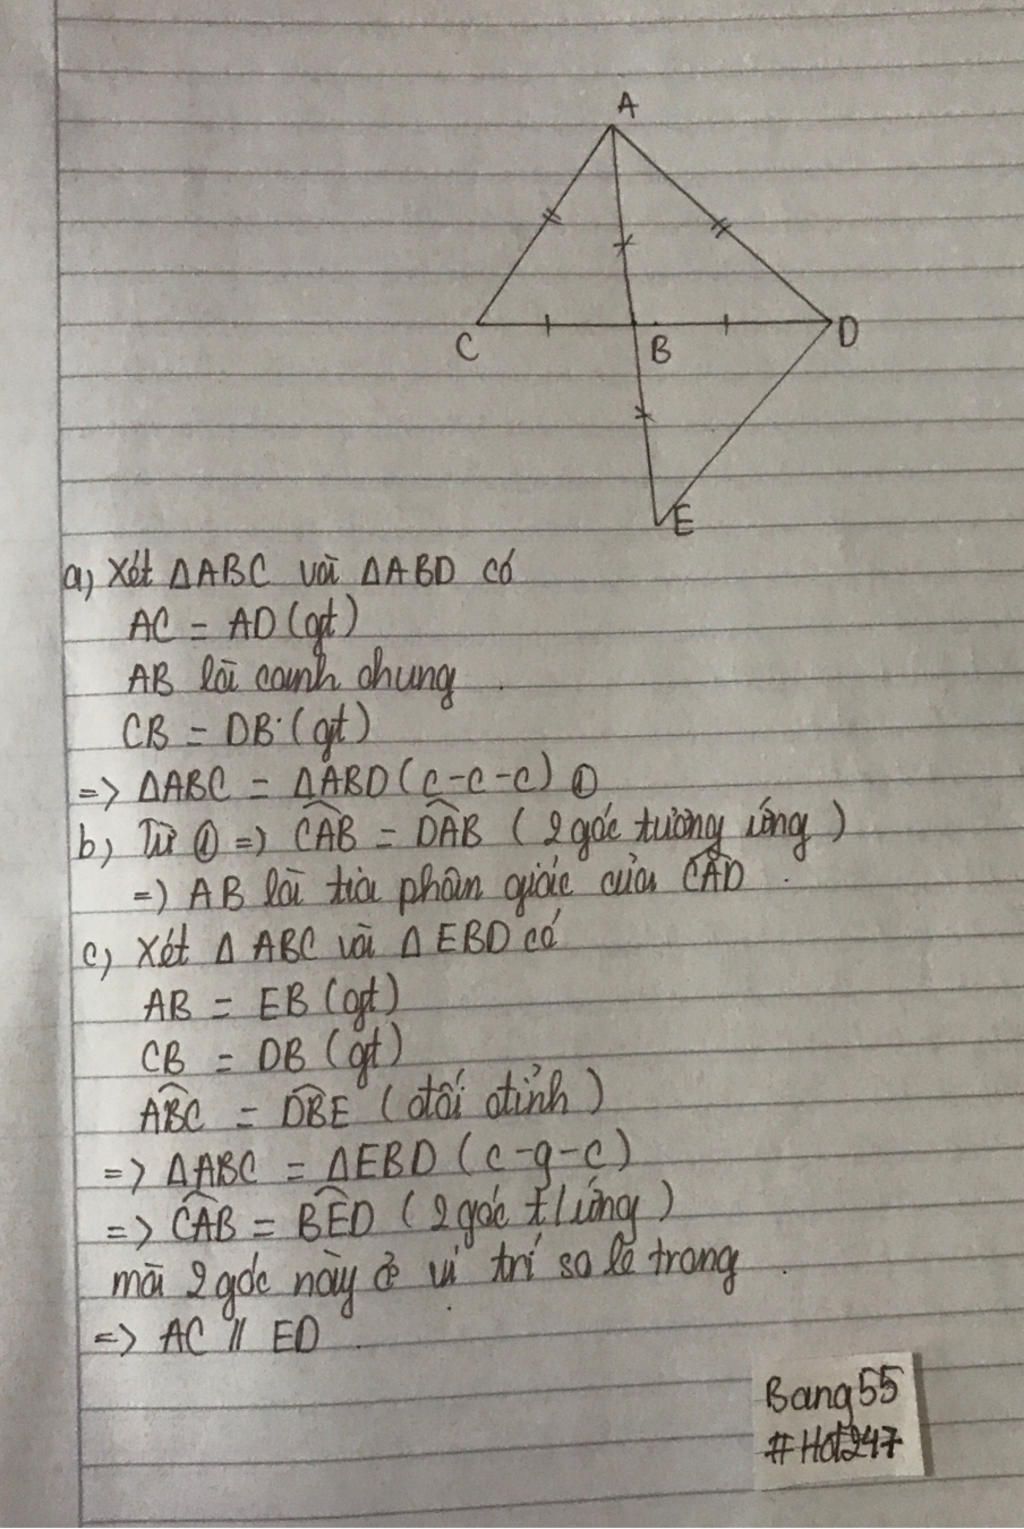 A
C
B
D
E
a) Xét ΔABC và ΔABD có
AC = AD (gt)
AB là cạnh chung
CB = DB (gt)
=> ΔABC = ΔABD (c-c-c) ①
b) Từ ① => CÂB = DÂB (2 góc tương ứng)
=> AB là tia phân giác của CÂD.
c) Xét Δ ABC và Δ EBD có
AB = EB (gt)
CB = DB (gt)
ABC = DBE (đối đỉnh)
=> ΔABC = ΔEBD (c-g-c)
=> CÂB = BÊD (2 góc t/ứng)
mà 2 góc này ở vị trí so le trong.
=> AC // ED.
Bang55
#Hot247